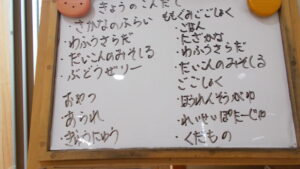 きょうのこんだて
・さかなのふらい
・わふうさらだ
・だいこんのみそしる
・ぶどうぜりー
おやつ
・あられ
・ぎゅうにゅう
ももぐみごごしょく
・ごはん
・たざかな
・わふうさらだ
・だいこんのみそしる
ごごしょく
・ほうれんそうがゆ
・れいせいぽたーじゅ
・くだもの